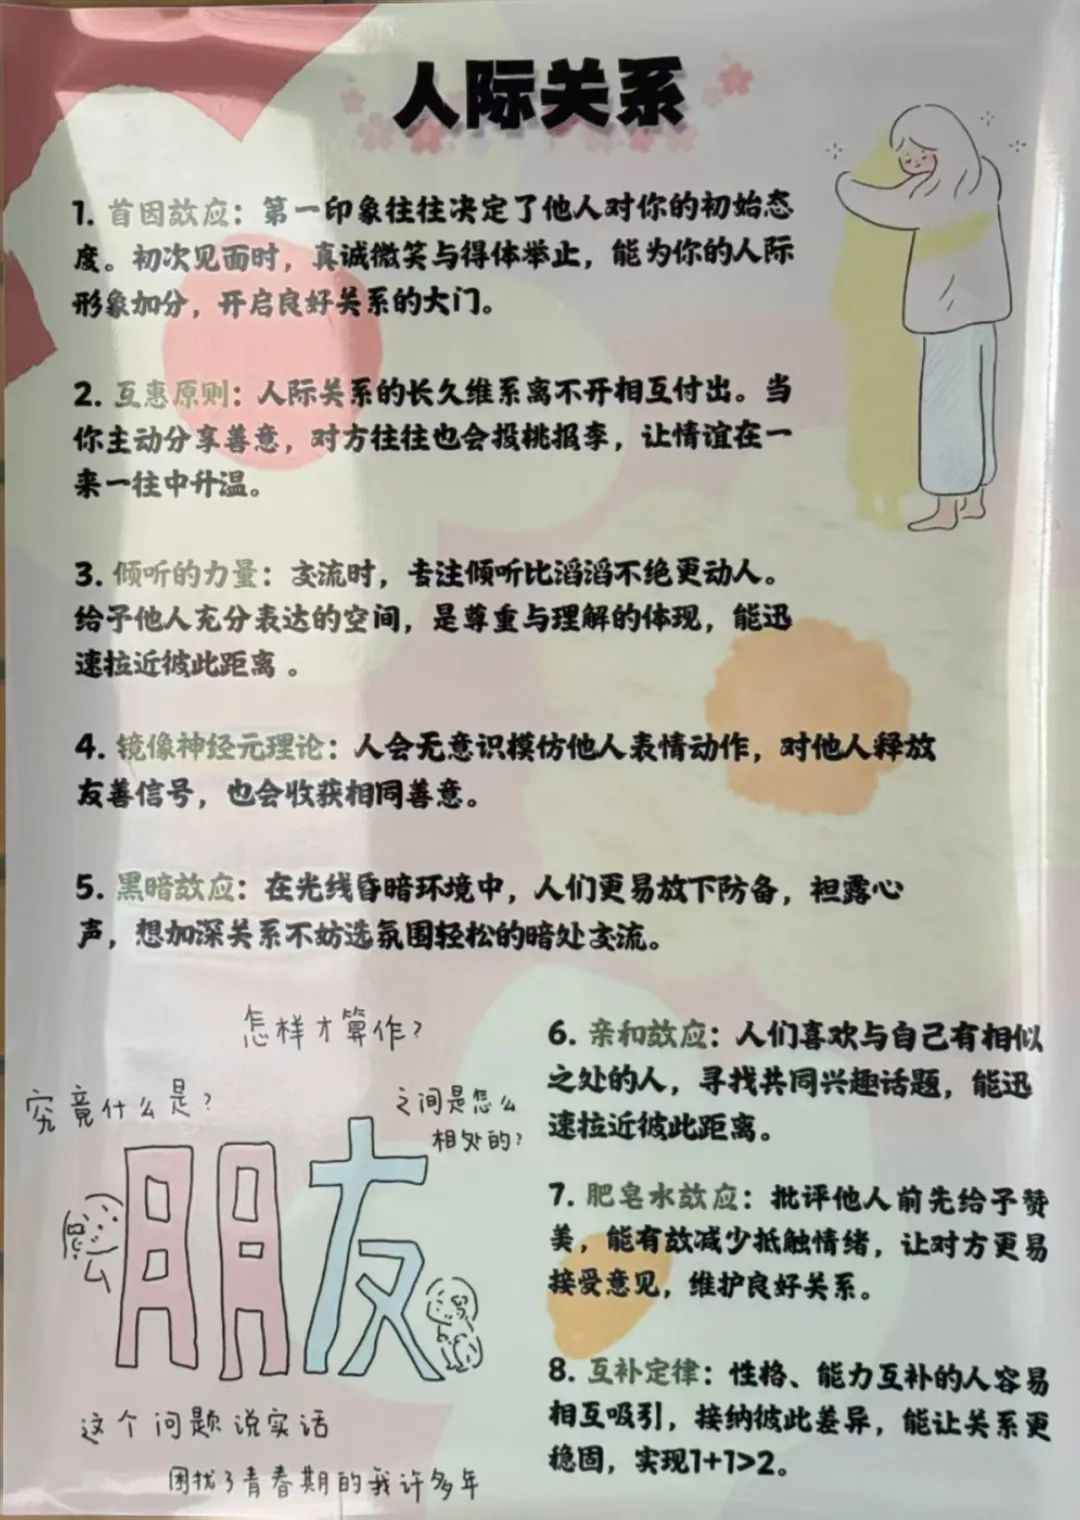 人际关系
1. 首因效应：第一印象往往决定了他人对你的初始态
度。初次见面时，真诚微笑与得体举止，能为你的人际
形象加分，开启良好关系的大门。
2. 互惠原则：人际关系的长久维系离不开相互付出。当
你主动分享善意，对方往往也会投桃报李，让情谊在一
来一往中升温。
3. 倾听的力量：交流时，专注倾听比滔滔不绝更动人。
给予他人充分表达的空间，是尊重与理解的体现，能迅
速拉近彼此距离 。
4. 镜像神经元理论：人会无意识模仿他人表情动作，对他人释放
友善信号，也会收获相同善意。
5. 黑暗效应：在光线昏暗环境中，人们更易放下防备，袒露心
声，想加深关系不妨选氛围轻松的暗处交流。
怎样才算作？
究竟什么是？
之间是怎么
相处的？
朋友
这个问题说实话
困扰了青春期的我许多年
6. 亲和效应：人们喜欢与自己有相似
之处的人，寻找共同兴趣话题，能迅
速拉近彼此距离。
7. 肥皂水效应：批评他人前先给予赞
美，能有效减少抵触情绪，让对方更易
接受意见，维护良好关系。
8. 互补定律：性格、能力互补的人容易
相互吸引，接纳彼此差异，能让关系更
稳固，实现1+1>2。